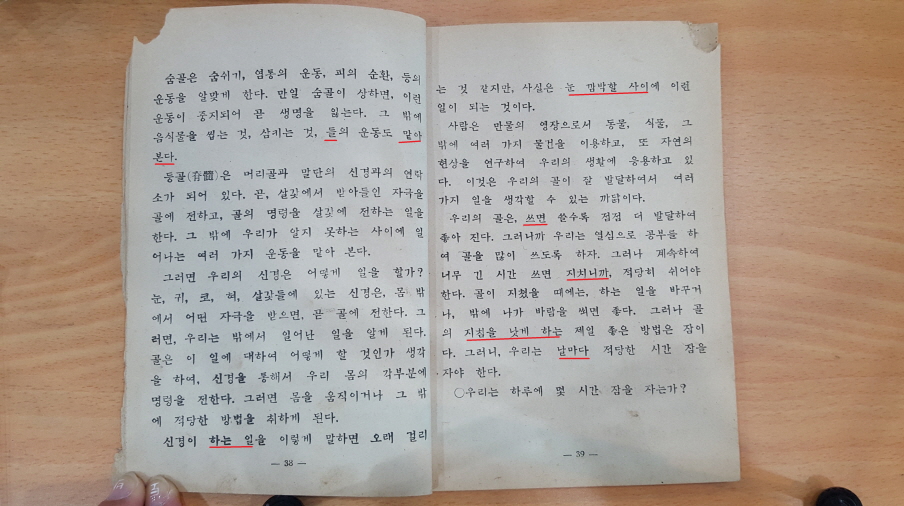 숨골은 숨쉬기, 염통의 운동, 피의 순환, 등의
운동을 알맞게 한다. 만일 숨골이 상하면, 이런
운동이 중지되어 곧 생명을 잃는다. 그 밖에
음식물을 씹는 것, 삼키는 것, 들의 운동도 맡아
본다.
등골(脊髓)은 머리골과 말단의 신경과의 연락
소가 되어 있다. 곧, 살갗에서 받아들인 자극을
골에 전하고, 골의 명령을 살갗에 전하는 일을
한다. 그 밖에 우리가 알지 못하는 사이에 일
어나는 여러 가지 운동을 맡아 본다.
그러면 우리의 신경은 어떻게 일을 할가?
눈, 귀, 코, 혀, 살갗들에 있는 신경은, 몸 밖
에서 어떤 자극을 받으면, 곧 골에 전한다. 그
러면, 우리는 밖에서 일어난 일을 알게 된다.
골은 이 일에 대하여 어떻게 할 것인가 생각
을 하여, 신경을 통해서 우리 몸의 각부분에
명령을 전한다. 그러면 몸을 움직이거나 그 밖
에 적당한 방법을 취하게 된다.
신경이 하는 일을 이렇게 말하면 오래 걸리
— 38 —
는 것 같지만, 사실은 눈 깜박할 사이에 이런
일이 되는 것이다.
사람은 만물의 영장으로서 동물, 식물, 그
밖에 여러 가지 물건을 이용하고, 또 자연의
현상을 연구하여 우리의 생활에 응용하고 있
다. 이것은 우리의 골이 잘 발달하여서 여러
가지 일을 생각할 수 있는 까닭이다.
우리의 골은, 쓰면 쓸수록 점점 더 발달하여
좋아 진다. 그러니까 우리는 열심으로 공부를 하
여 골을 많이 쓰도록 하자. 그러나 계속하여
너무 긴 시간 쓰면 지치니까, 적당히 쉬어야
한다. 골이 지쳤을 때에는, 하는 일을 바꾸거
나, 밖에 나가 바람을 쐬면 좋다. 그러나 골
의 지침을 낫게 하는 제일 좋은 방법은 잠이
다. 그러니, 우리는 날마다 적당한 시간 잠을
자야 한다.
○우리는 하루에 몇 시간 잠을 자는가?
— 39 —